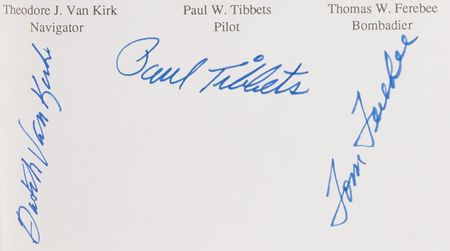 Theodore J. Van Kirk
Navigator
Paul W. Tibbets
Pilot
Thomas W. Ferebee
Bombadier
Dutch Van Kirk
Paul Tibbets
Tom Ferebee